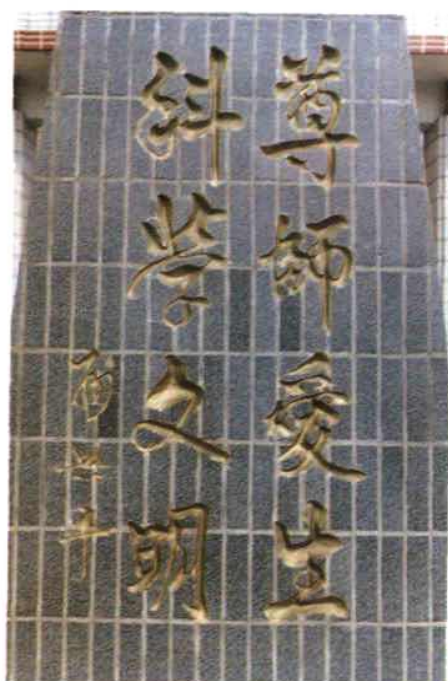 尊師爱生
科学文明